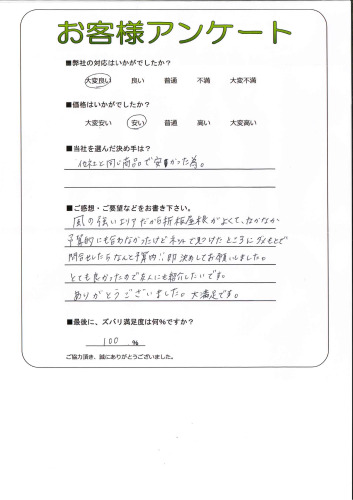 お客様アンケート
■弊社の対応はいかがでしたか？
大変良い 良い 普通 不満 大変不満
■価格はいかがでしたか？
大変安い 安い 普通 高い 大変高い
■当社を選んだ決め手は？
他社と同じ商品で安かった為。
■ご感想・ご要望などをお書き下さい。
風の強いエリアだから折板屋根がよくて、なかなか
予算的にも合わなかったけどネットで見つけたところにダメもとで
問合せしたらなんと予算内!!即決めしてお願いしました。
とても良かったので友人にも紹介したいです。
ありがとうございました。大満足です。
■最後に、ズバリ満足度は何%ですか？
100 %
ご協力頂き、誠にありがとうございました。